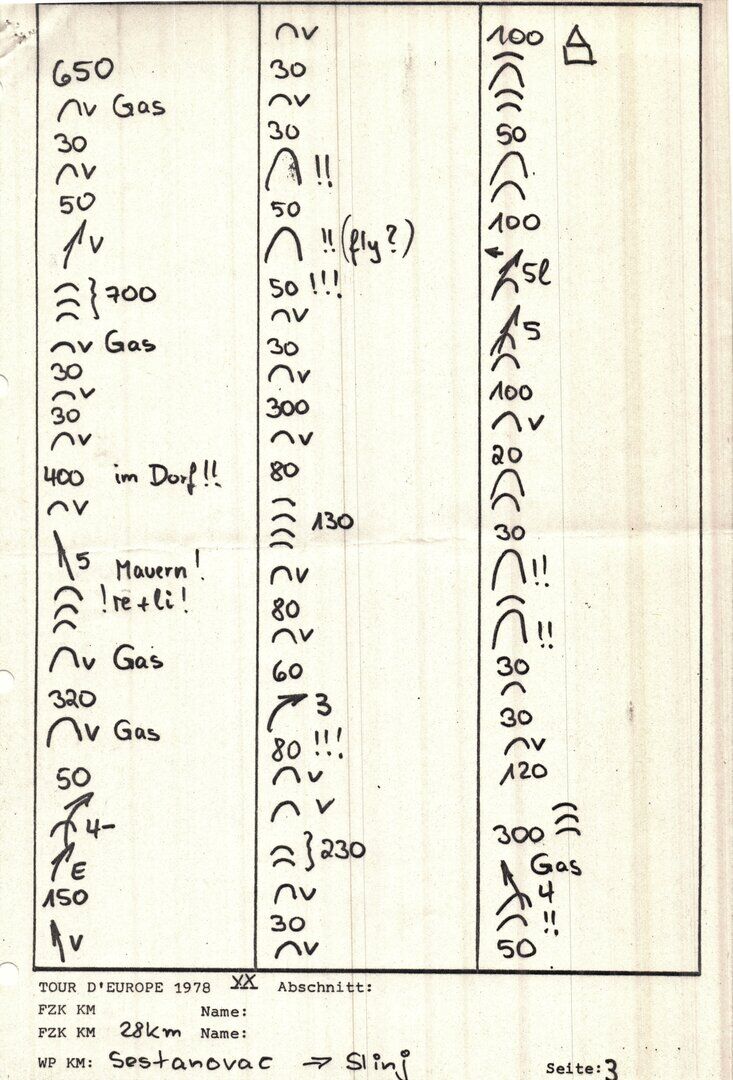 650
v Gas
30
v
50
v
700
v Gas
30
v
30
v
400 im Dorf!!
v
5 Mauern!
!re+li!
v Gas
320
v Gas
50
4-
E
150
v
v
30
v
30
!!
50
!! (fly?)
50 !!!
v
30
v
300
v
80
130
v
80
v
60
3
80 !!!
v
v
230
v
30
v
100
50
100
5l
5
100
v
20
30
!!
!!
30
30
v
120
300
Gas
4
!!
50
TOUR D'EUROPE 1978 XX Abschnitt:
FZK KM Name:
FZK KM 28km Name:
WP KM: Sestanovac → Slinj Seite: 3